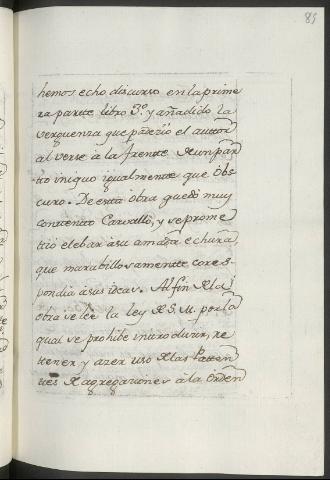 85
hemos echo discurso en la prime
ra parte libro 3º. y añadido la
verguenza que padezió el auttor
al verse à la frente de un par
to iniquo igualmente que obs
curo. De esta obra quedò muy
contento Carvallo, y se prome
tió elebar à su amada echura,
que marabillosamente cores
pondia à sus ideas. Al fin de la
obra se lee la ley de S. M. por la
qual se prohibe introducir, re
tener y azer uso de las Patten
tes de agregaziones à la Orden